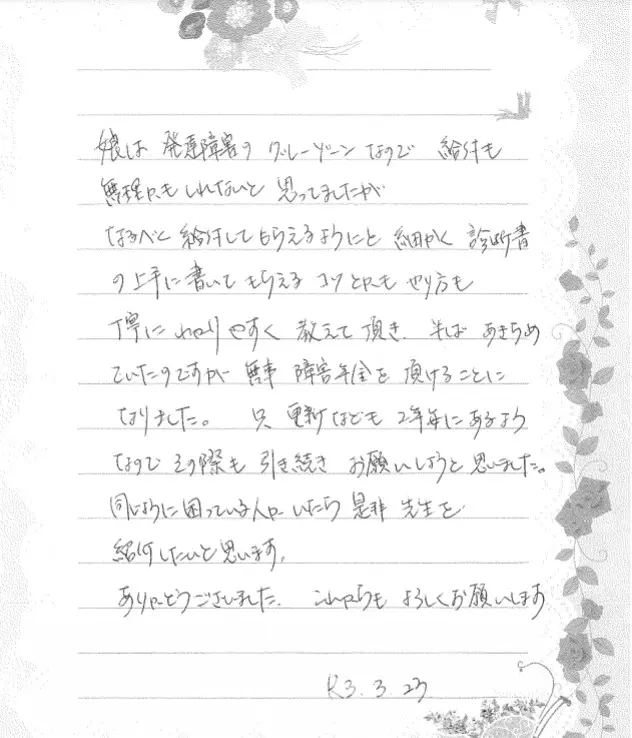 娘は 発達障害の グレーゾーン なので 給付も
無理かもしれないと 思ってましたが
なるべく 給付してもらえるようにと 細かく 診断書
の上手に書いて もらえる コツとかも やり方も
丁寧に わかりやすく 教えて頂き、半ば あきらめ
ていたのですが 無事 障害年金を 頂けることに
なりました。 只 更新なども 2年毎にあるよう
なので その際も 引き続き お願いしようと思いました。
同じように困っている人がいたら 是非 先生を
紹介したいと思います。
ありがとうございました。 これからも よろしくお願いします
R3.3.23